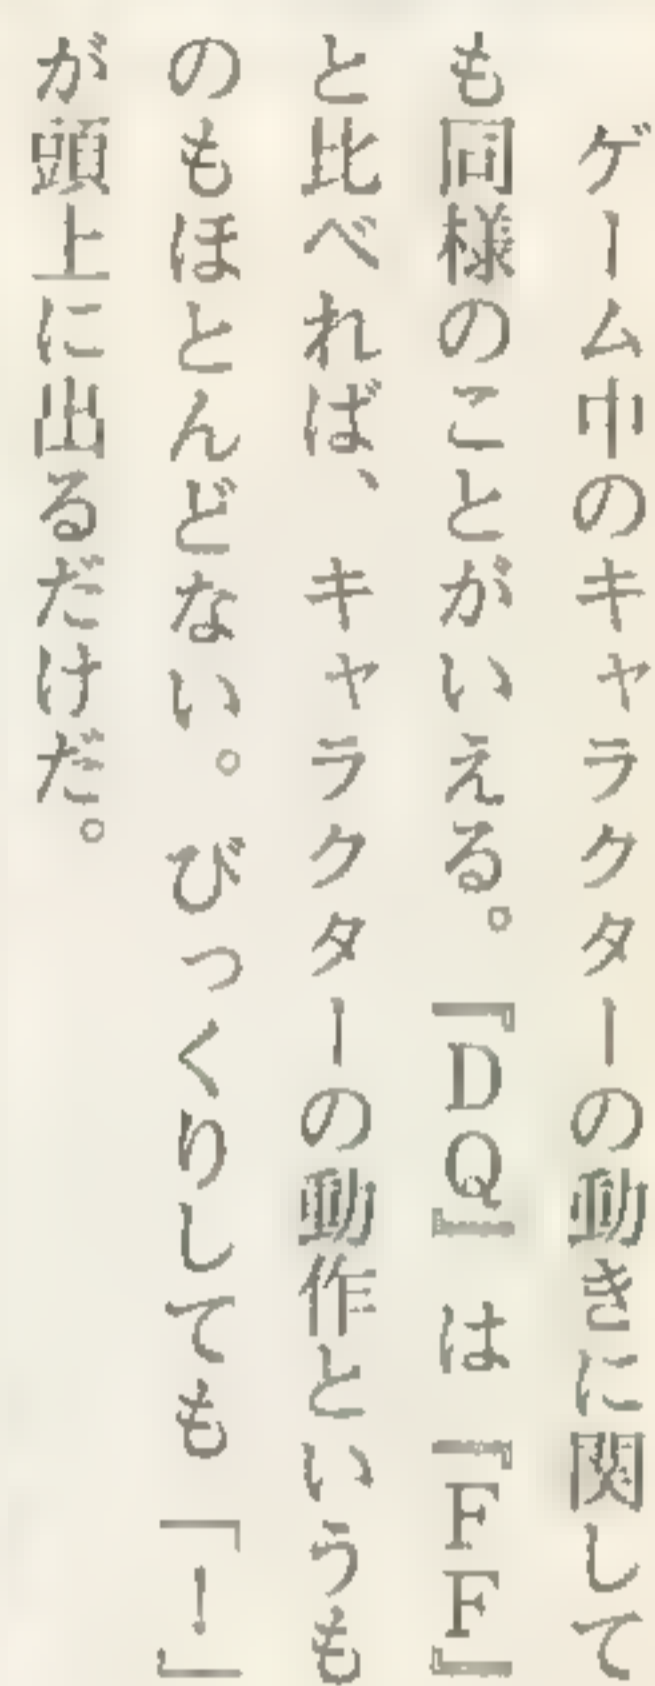 ゲーム中のキャラクターの動きに関して
も同様のことがいえる。『DQ』は『FF』
と比べれば、キャラクターの動作というも
のもほとんどない。びっくりしても「！」
が頭上に出るだけだ。